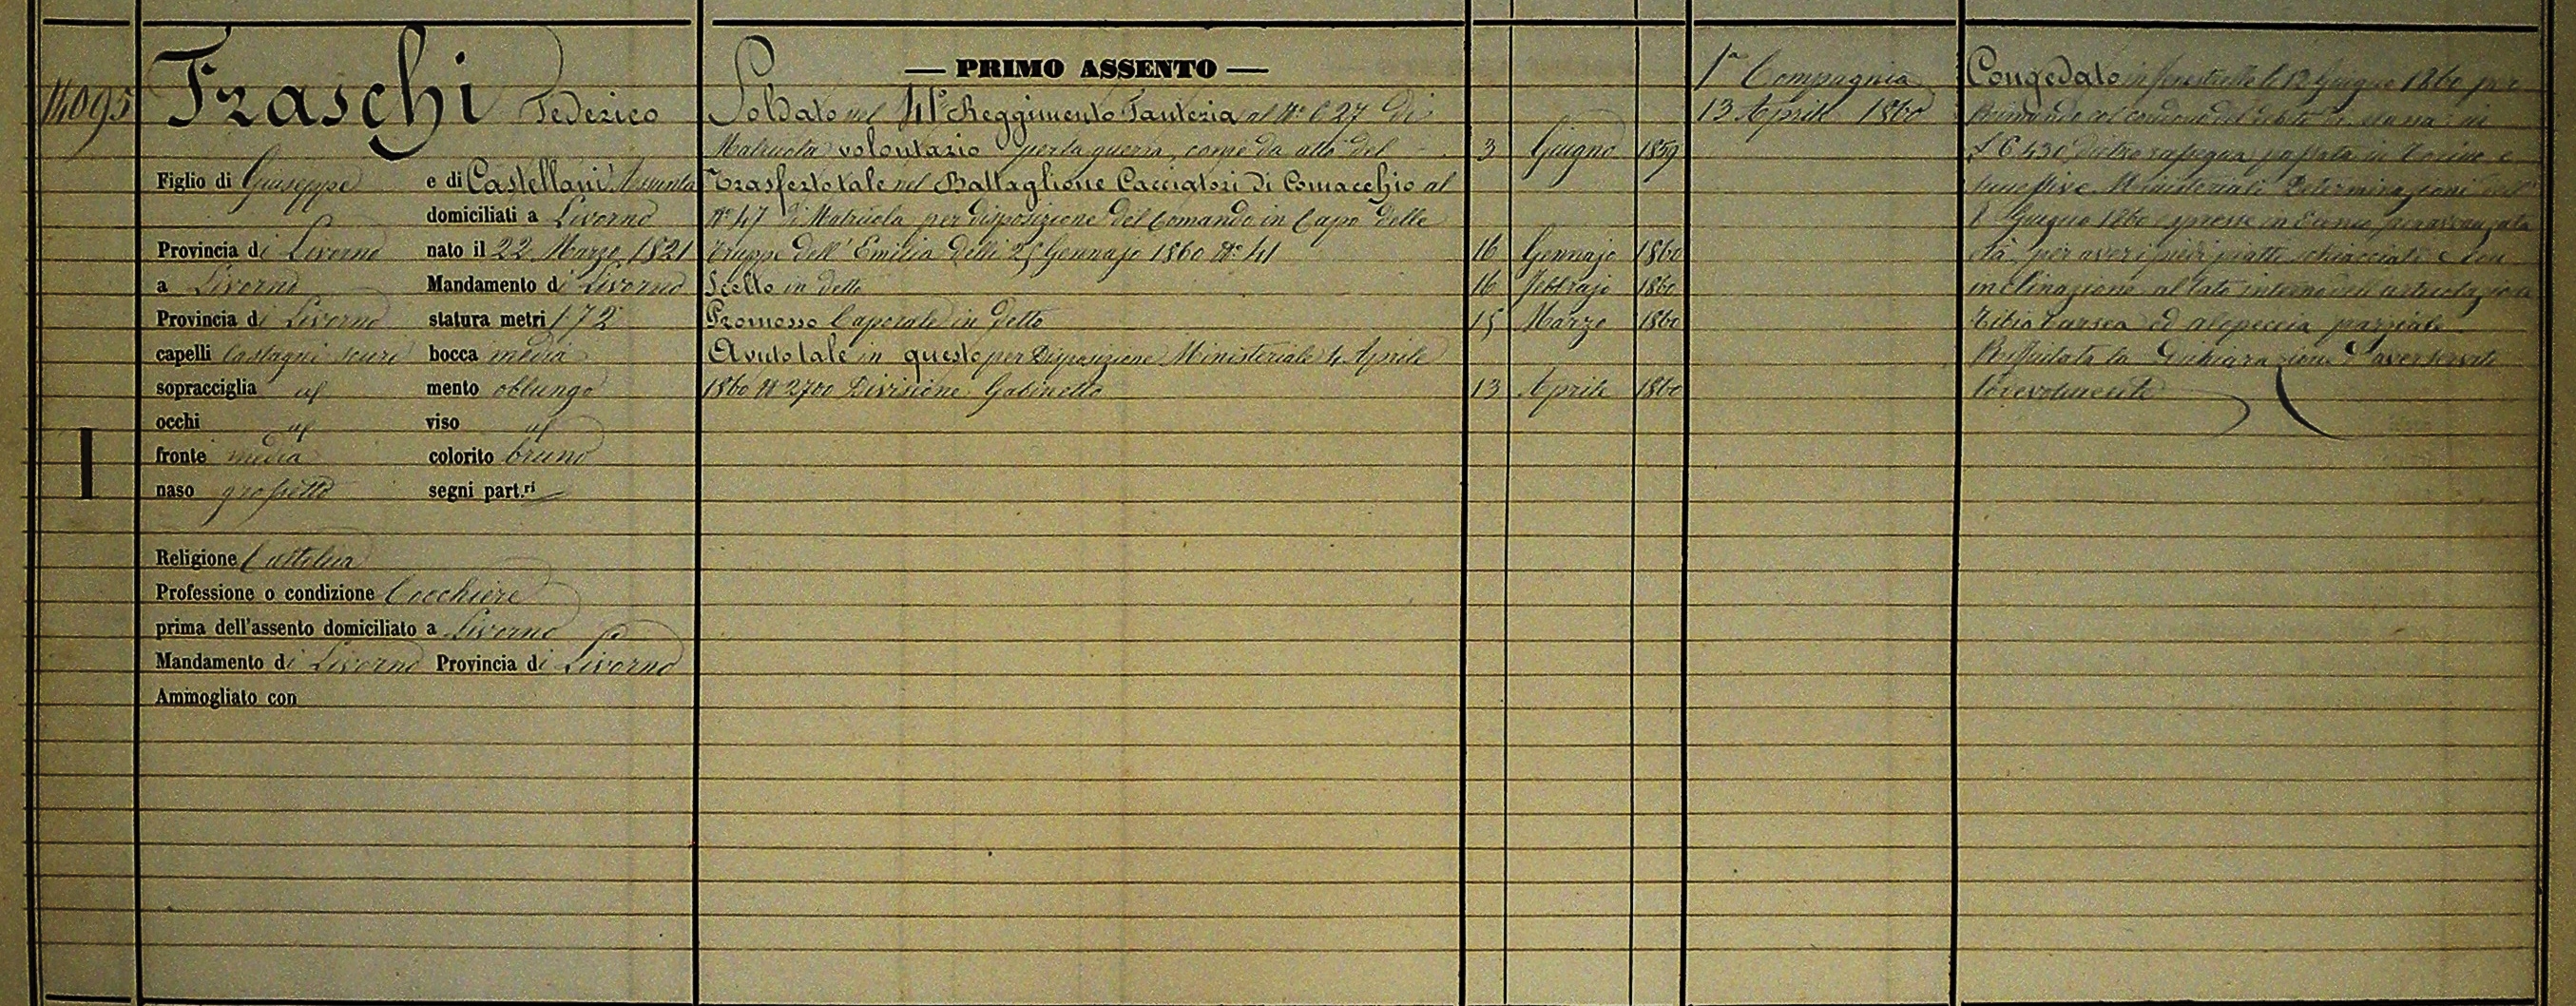 14095
Fraschi Federico
Figlio di Giuseppe e di Castellani Assunta
domiciliati a Livorno
Provincia di Livorno nato il 22 Marzo 1821
a Livorno Mandamento di Livorno
Provincia di Livorno statura metri 1 72
capelli castagni scuri bocca media
sopracciglia id mento oblungo
occhi id viso id
fronte media colorito bruno
naso grossetto segni part.ri
Religione Cattolica
Professione o condizione Cocchiere
prima dell'assento domiciliato a Livorno
Mandamento di Livorno Provincia di Livorno
Ammogliato con
— PRIMO ASSENTO —
Soldato nel 41° Reggimento Fanteria al N° 627 di
Matricola volontario per la guerra, come da atto del 3 Giugno 1859
Trasferto tale nel Battaglione Cacciatori di Comacchio al
N° 47 di Matricola per disposizione del Comando in Capo delle
truppe dell'Emilia delli 25 Gennajo 1860 N° 41 16 Gennajo 1860
Scelto in detto 16 Febbrajo 1860
Promosso Caporale in detto 15 Marzo 1860
Avuto tale in questo per Disposizione Ministeriale 4 Aprile
1860 N 2700 Divisione Gabinetto 13 Aprile 1860
1a Compagnia
13 Aprile 1860
Congedato in Fenestrelle li 12 Giugno 1860 per
Rimando col condono del debito di massa di
£ 6.430, dietro rassegna passata in Torino e
successive Ministeriali Determinazioni dell'
8 Giugno 1860 espresse in Elenco, per avanzata
età, per aver i piedi piatti, schiacciati e con
inclinazione al lato interno dell'articolazione
Tibio tarsea ed alopeccia parziale.
Rilasciata la Dichiarazione d'aver servito
lodevolmente